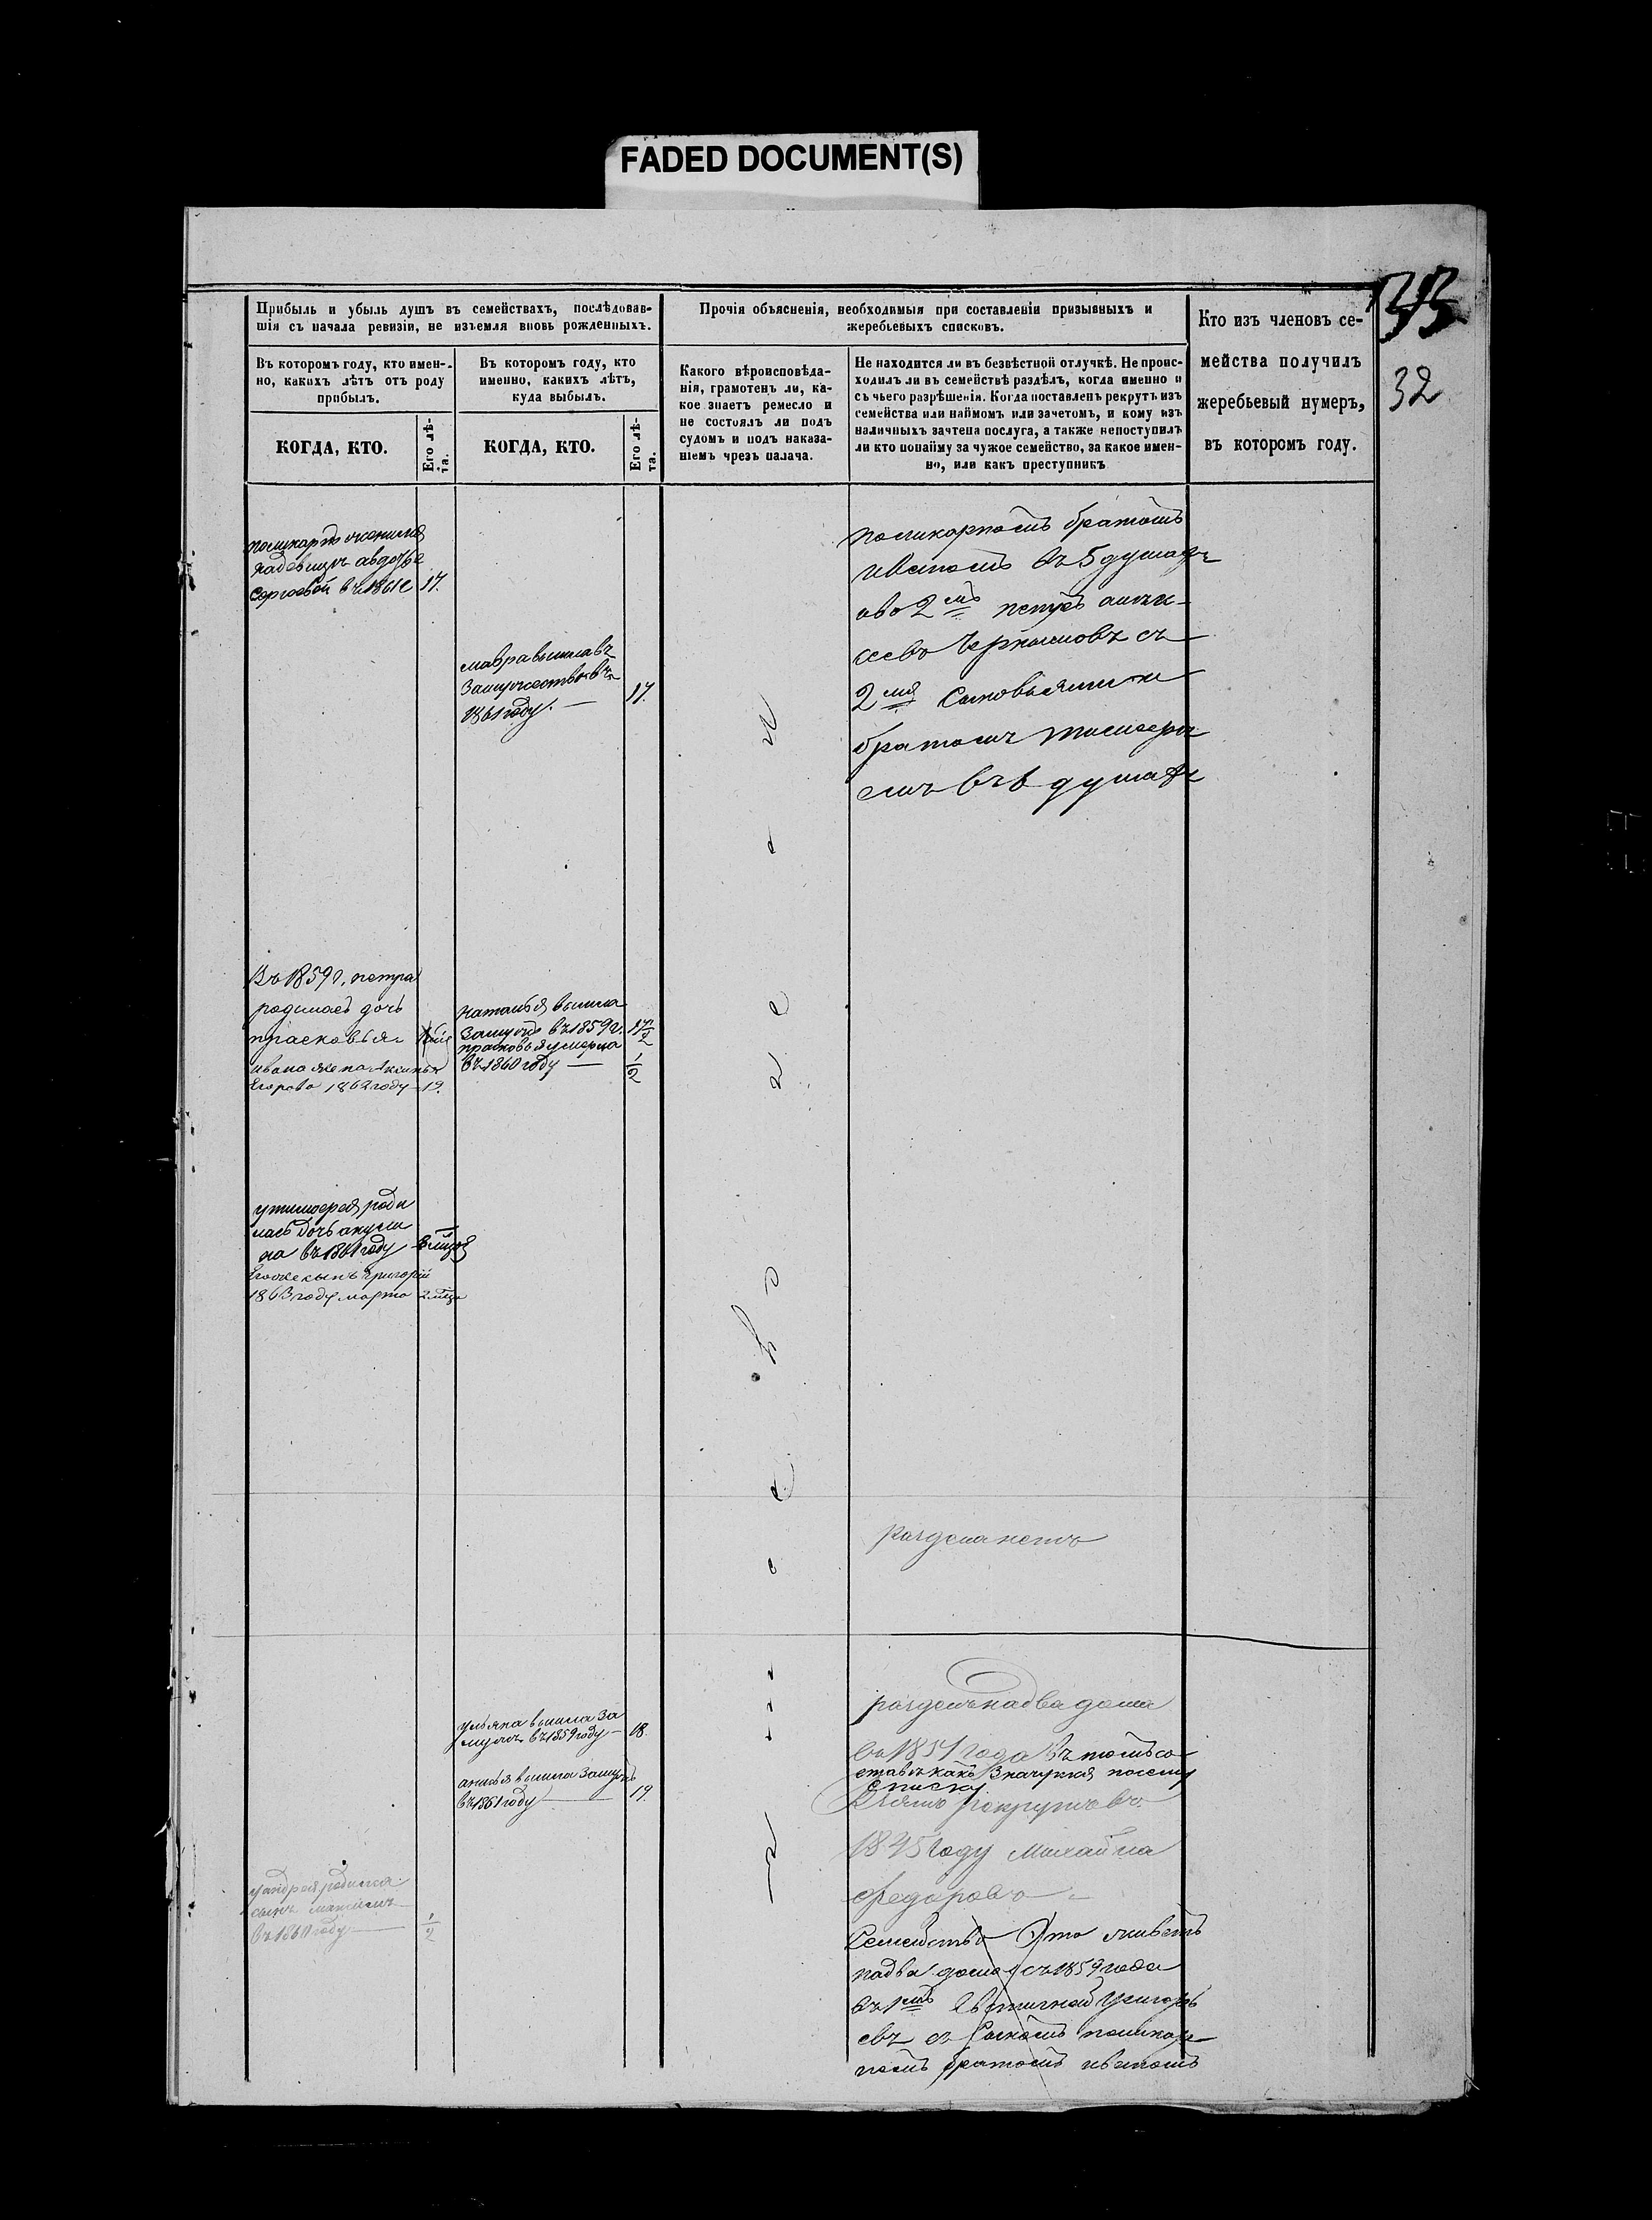 FADED DOCUMENT(S)
33
32
Прибыль и убыль душъ въ семействахъ, послѣдовав-
шія съ начала ревизіи, не изъемля вновь рожденныхъ.
Прочія объясненія, необходимыя при составленіи призывныхъ и
жеребьевыхъ списковъ.
Кто изъ членовъ се-
мейства получилъ
жеребьевый нумеръ,
въ которомъ году.
Въ которомъ году, кто имен-
но, какихъ лѣтъ отъ роду
прибылъ.
Въ которомъ году, кто
именно, какихъ лѣтъ,
куда выбылъ.
Какого вѣроисповѣда-
нія, грамотенъ ли, ка-
кое знаетъ ремесло и
не состоялъ ли подъ
судомъ и подъ наказа-
ніемъ чрезъ палача.
Не находится ли въ безвѣстной отлучкѣ. Не проис-
ходилъ ли въ семействѣ раздѣлъ, когда именно и
съ чьего разрѣшенія. Когда поставленъ рекрутъ изъ
семейства или наймомъ или зачетомъ, и кому изъ
наличныхъ зачтена послуга, а также непоступилъ
ли кто понайму за чужое семейство, за какое имен-
но, или какъ преступникъ
КОГДА, КТО.
Его лѣ-
та.
КОГДА, КТО.
Его лѣ-
та.
поликарпъ оженился
надевицъ авдотье
Сергоевой въ 1861 г 17.
мавра вышла въ
Замужество въ
1861 году. — 17.
поликарпомъ братомъ
иваномъ въ 5 душахъ
аво 2мъ петръ
севъ Чернышовъ съ
2мя Сыновьями и
братомъ тимофее
емъ въ 6 душахъ
Въ 1859 г. петра
родилась дочь
прасковья
ивана жена Аксинья
Егорова 1862 году 19.
наталья вышла
Замужъ въ 1859 г. 17 1/2
прасковья умерла
въ 1860 году — 1/2
у тимофея роди
лась дочь акули
на въ 1861 году
Егоже сынъ Григорій
1863 году марта
раздела нетъ
ульяна вышла За
мужъ въ 1859 году — 18.
анисья вышла Замужъ
въ 1861 году — 19.
разделъ на два дома
въ 1857 года Въ томъ со
ставе какъ Значится посему
Списку
рекрутъ въ
1845 году Михайла
Федоровъ
у андрея родился
сынъ максимъ
въ 1860 году — 1/2
Семейство Это живетъ
на два дома съ 1859 года
въ 1мъ Григорь
евъ съ Сыномъ поликар
помъ братомъ иваномъ